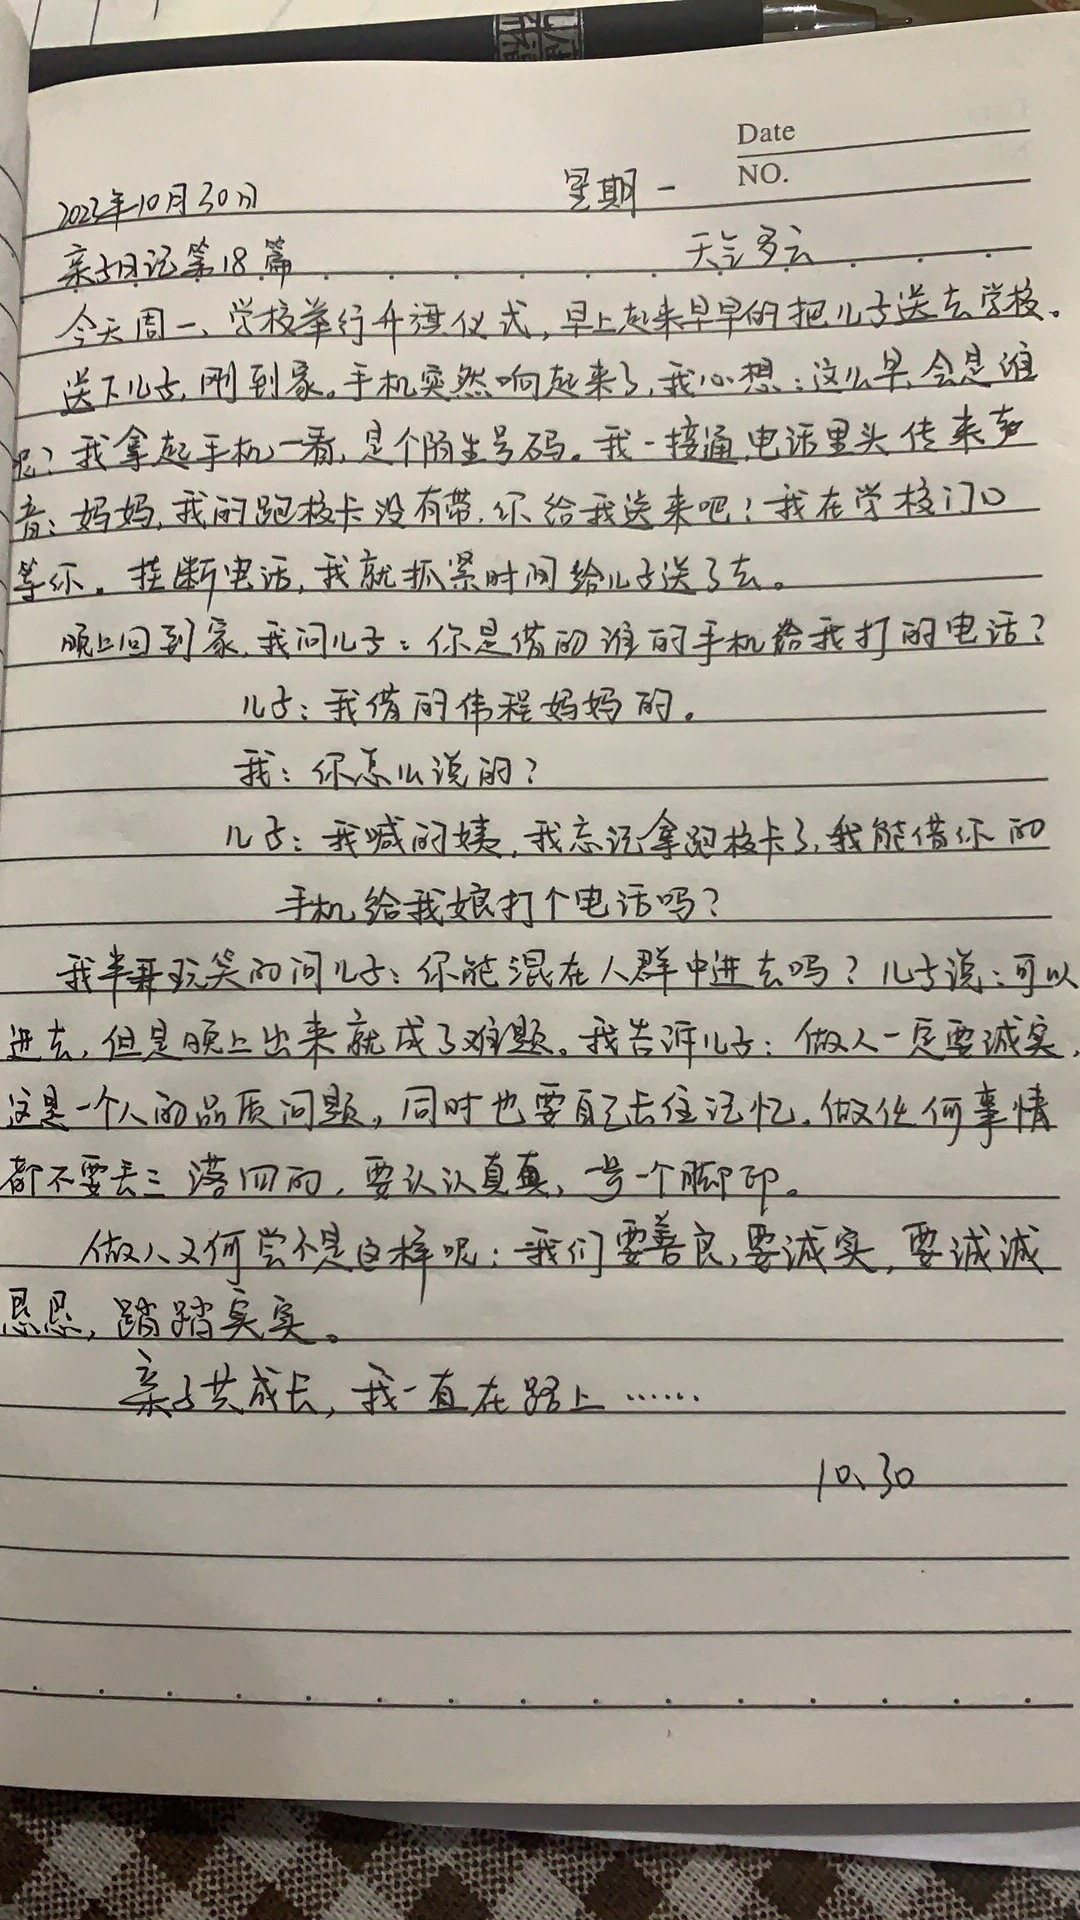 Date
NO.
2023年10月30日 星期一
亲子日记第18篇 天气多云
今天周一、学校举行升旗仪式,早上起来早早的把儿子送去学校。
送下儿子,刚到家。手机突然响起来了,我心想:这么早,会是谁
呢?我拿起手机一看,是个陌生号码。我一接通,电话里头传来声
音:妈妈,我的跑校卡没有带,你给我送来吧!我在学校门口
等你。挂断电话,我就抓紧时间给儿子送了去。
晚上回到家,我问儿子:你是借的谁的手机给我打的电话?
儿子:我借的伟程妈妈的。
我:你怎么说的?
儿子:我喊的姨,我忘记拿跑校卡了,我能借你的
手机给我娘打个电话吗?
我半开玩笑的问儿子:你能混在人群中进去吗?儿子说:可以
进去,但是晚上出来就成了难题。我告诉儿子:做人一定要诚实,
这是一个人的品质问题,同时也要自己去住记忆,做任何事情
都不要丢三落四的,要认认真真,一步一个脚印。
做人又何尝不是这样呢:我们要善良,要诚实,要诚诚
恳恳,踏踏实实。
亲子共成长,我一直在路上……
10、30